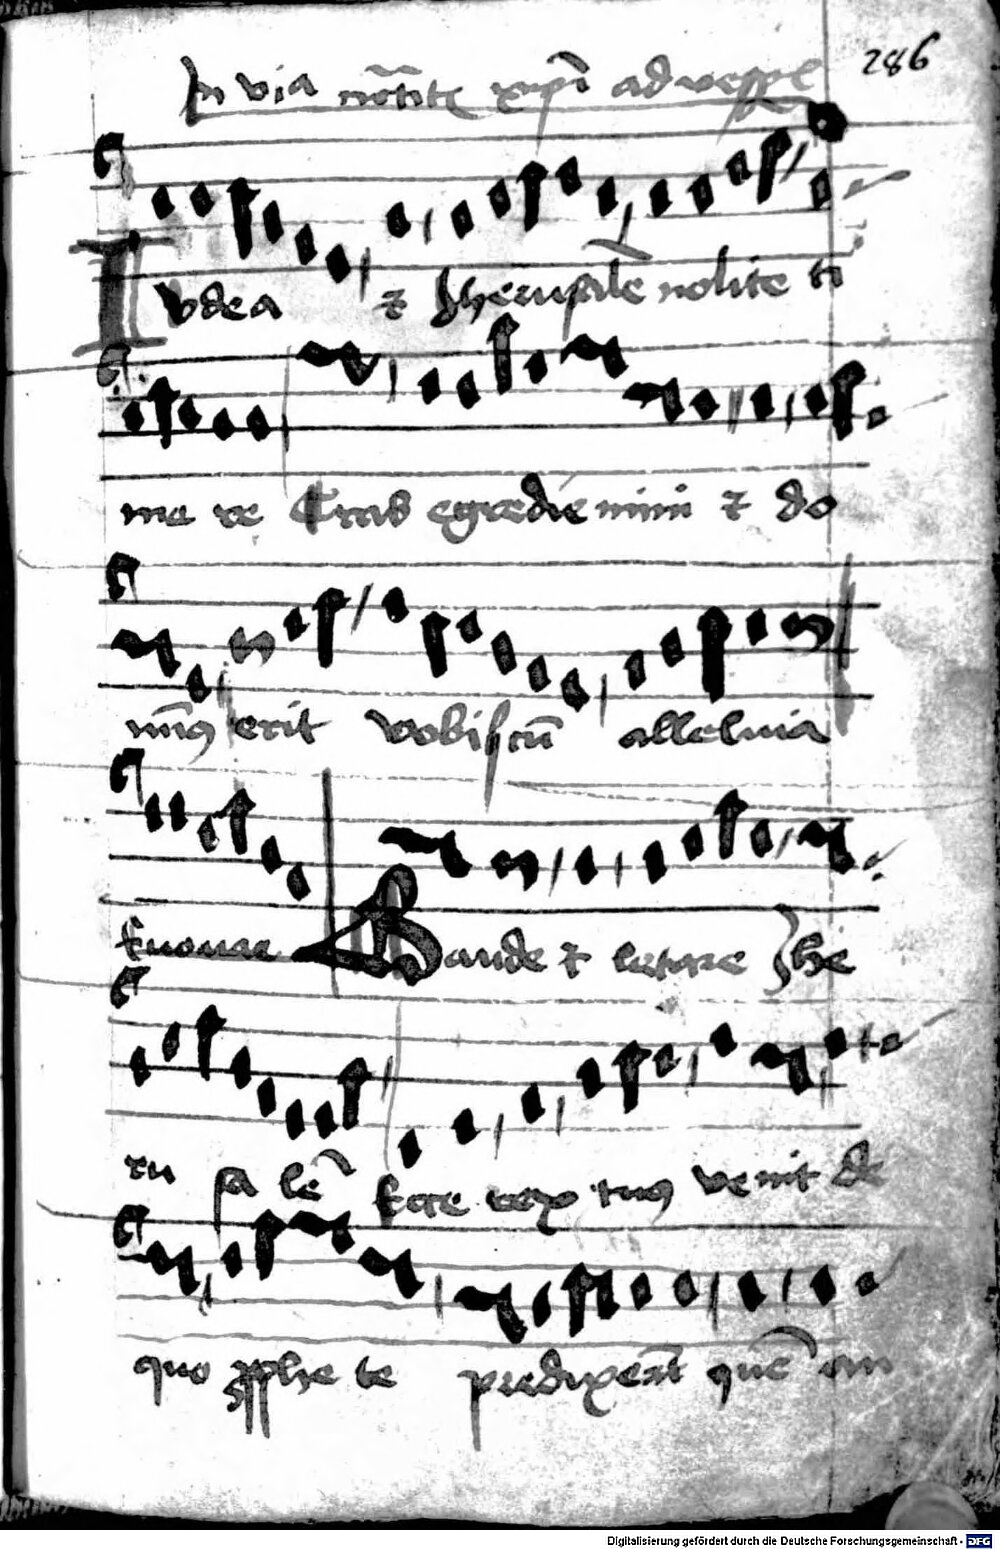 In via natītē xpī ad vesp̄e
286
Iudea ⁊ Jherusalē nolite ti
me re Cras egredie mini ⁊ do
min9 erit vobiscū alleluia
Euouae Gaude ⁊ letare Jhe
ru sa lē Ecce rex tuus venit de
quo pphe te predixer̄t quē om
Digitalisierung gefördert durch die Deutsche Forschungsgemeinschaft - DFG